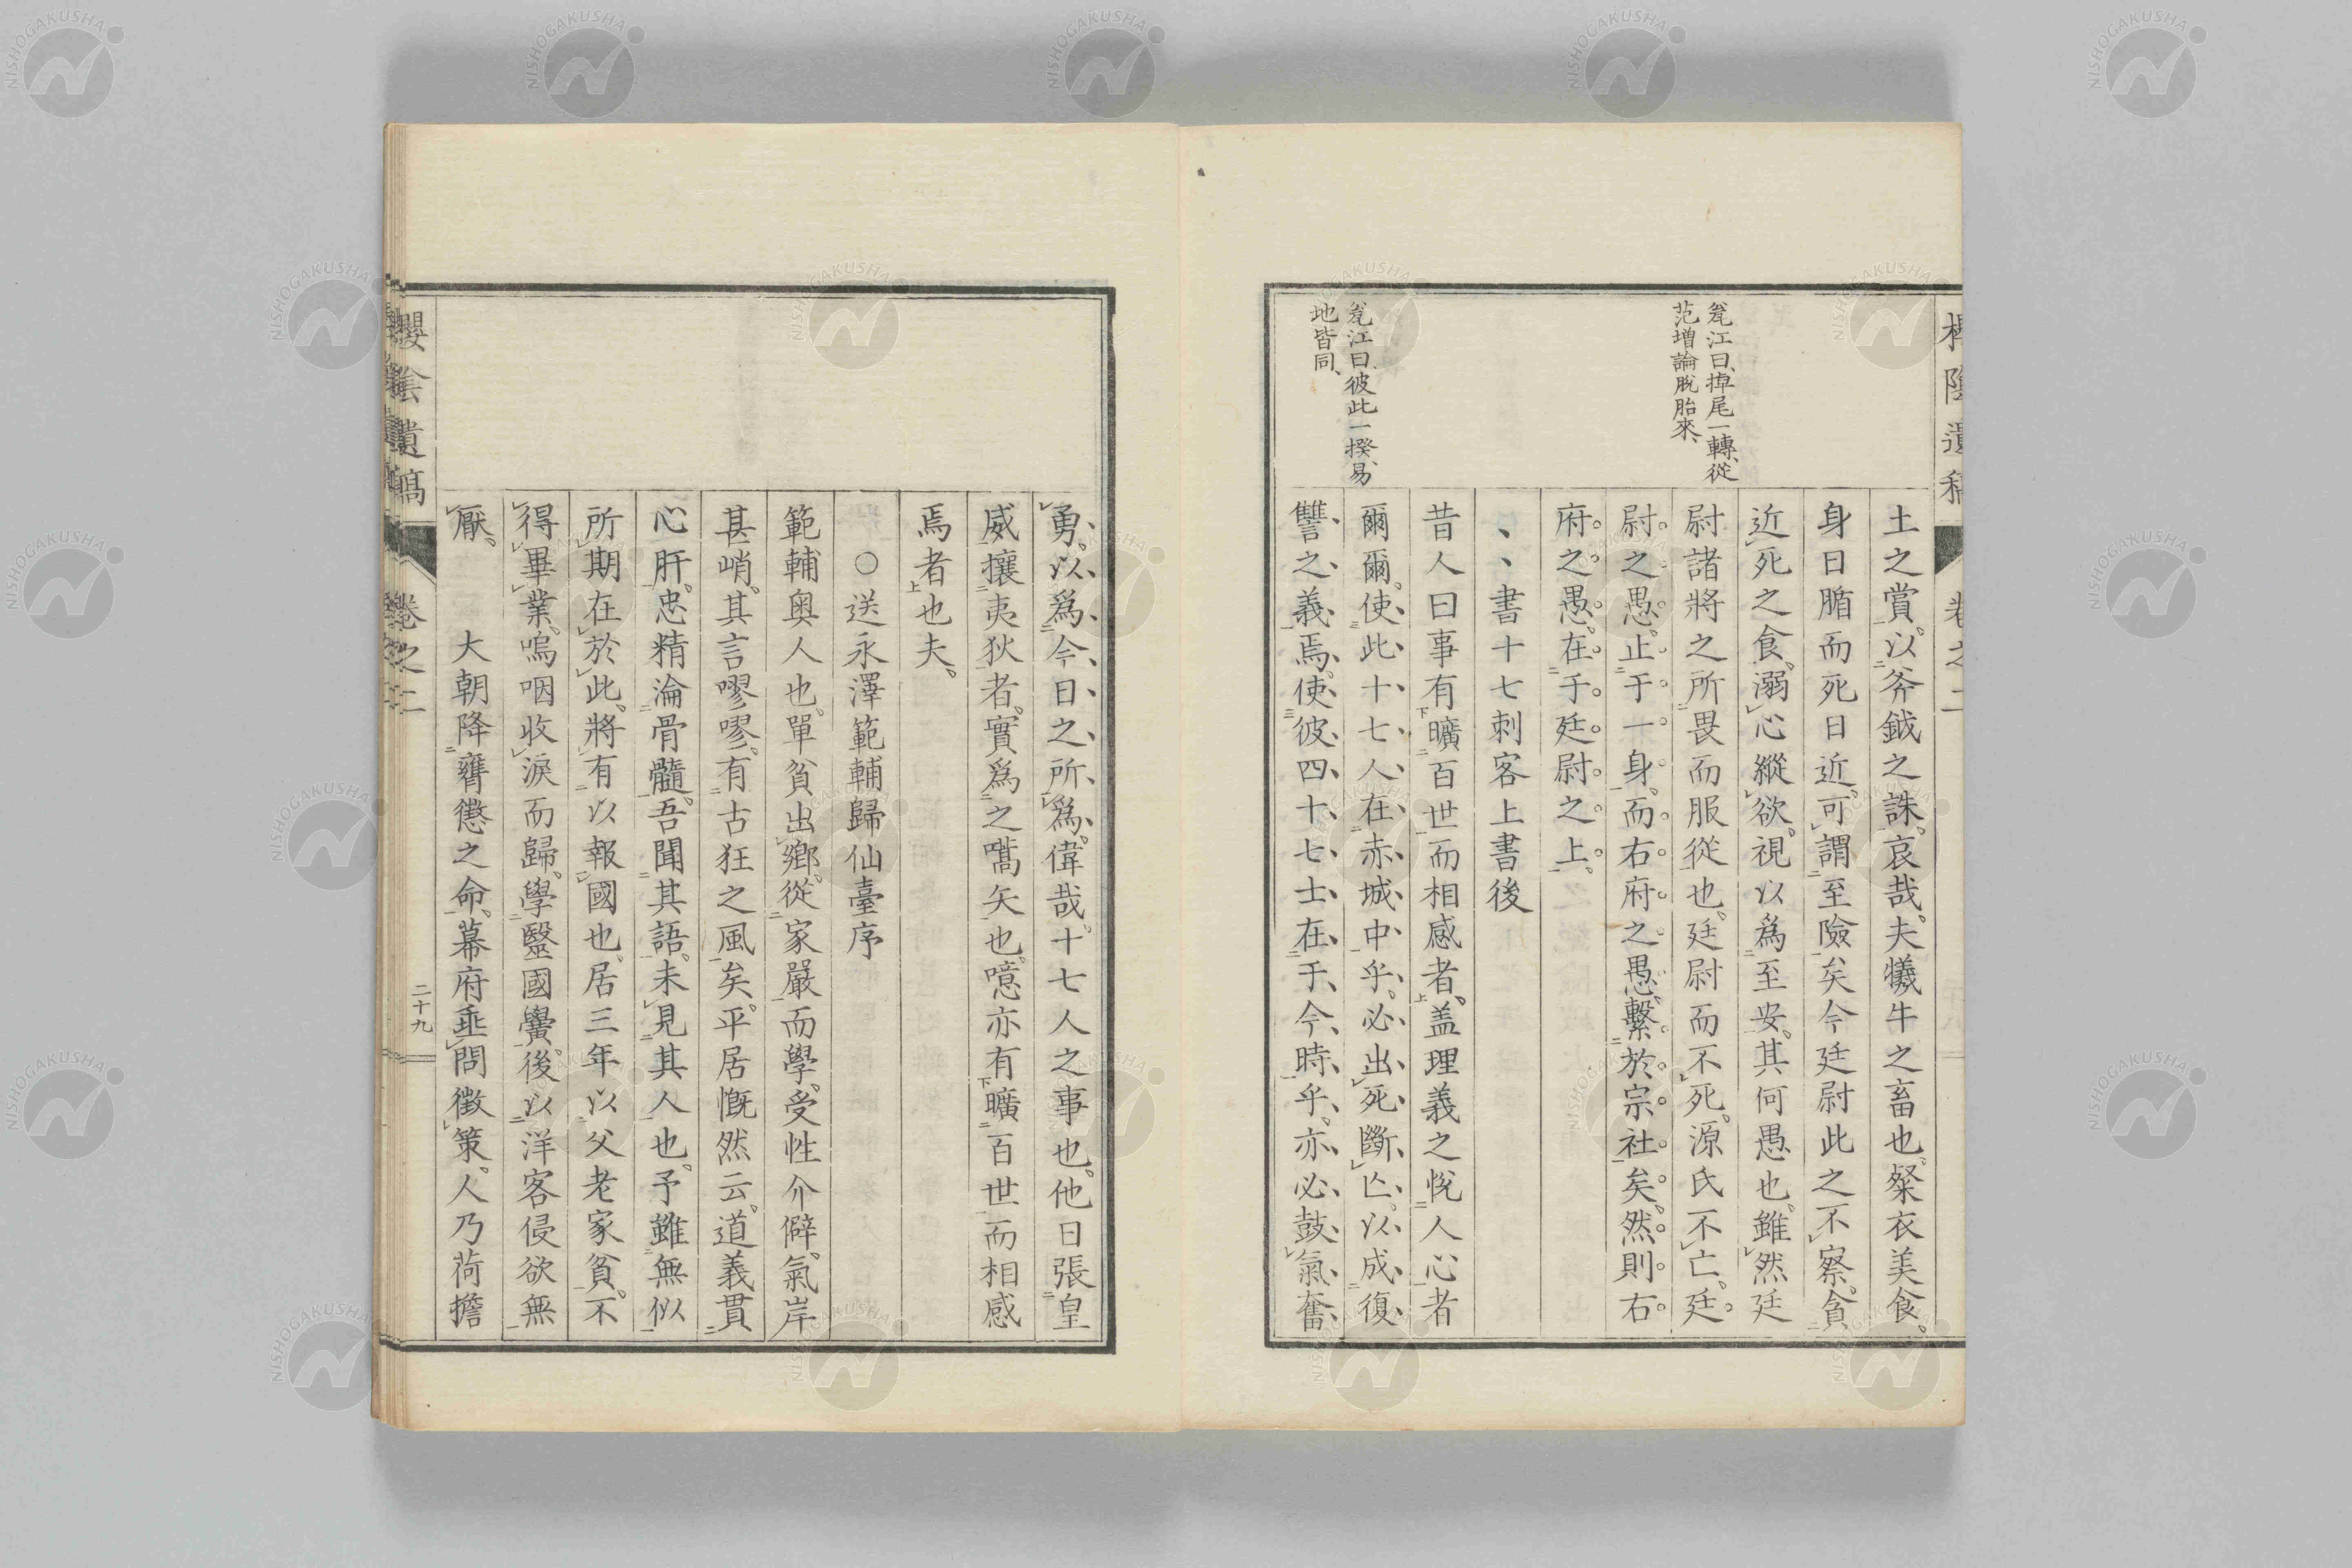 土之賞。以斧鉞之誅。哀哉。夫犧牛之畜也。粲衣美食。
身日腯而死日近。可謂至險矣今廷尉此之不察。貪
近死之食。溺心縱欲。視以為至安。其何愚也。雖然廷
尉諸將之所畏而服從也。廷尉而不死。源氏不亡。廷
尉之愚。止于一身。而右府之愚。繫於宗社矣。然則右
府之愚。在于廷尉之上。
、、書十七刺客上書後
昔人曰事有曠百世而相感者。盖理義之悅人心者
爾爾。使此十七人在赤城中乎。必出死斷亾。以成復
讐之義焉。使彼四十七士在于今時乎。亦必鼓氣奮
甕江曰、掉尾一轉、從
范增論脫胎來、
甕江曰、彼此一揆、易
地皆同、
櫻陰遺稿
卷之二
勇。以爲今日之所爲。偉哉。十七人之事也。他日張皇
威攘夷狄者。實爲之嚆矢也。噫亦有曠百世而相感
焉者也夫。
○送永澤範輔歸仙臺序
範輔奥人也。單貧出鄉。從家嚴而學。受性介僻。氣岸
甚峭。其言嘐嘐。有古狂之風矣。平居慨然云。道義貫
心肝。忠精淪骨髓。吾聞其語。未見其人也。予雖無似
所期在於此。將有以報國也。居三年以父老家貧。不
得畢業。嗚咽收淚而歸。學毉國黌。後以洋客侵欲無
厭。　大朝降膺懲之命。幕府垂問徵策。人乃荷擔
櫻陰遺稿
卷之二
二十九
NISHOGAKUSHA